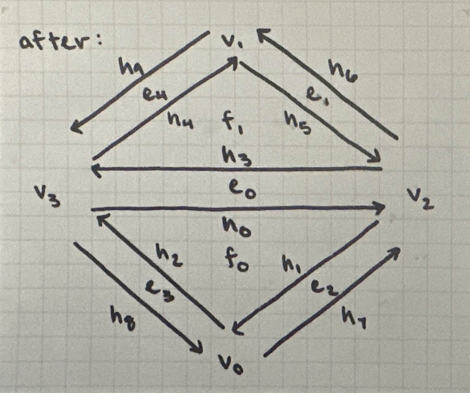 after:
v₁
h₉
h₆
e₄
e₁
h₄
f₁
h₅
h₃
v₃
e₀
v₂
h₀
h₂
f₀
h₁
e₃
e₂
h₈
h₇
v₀